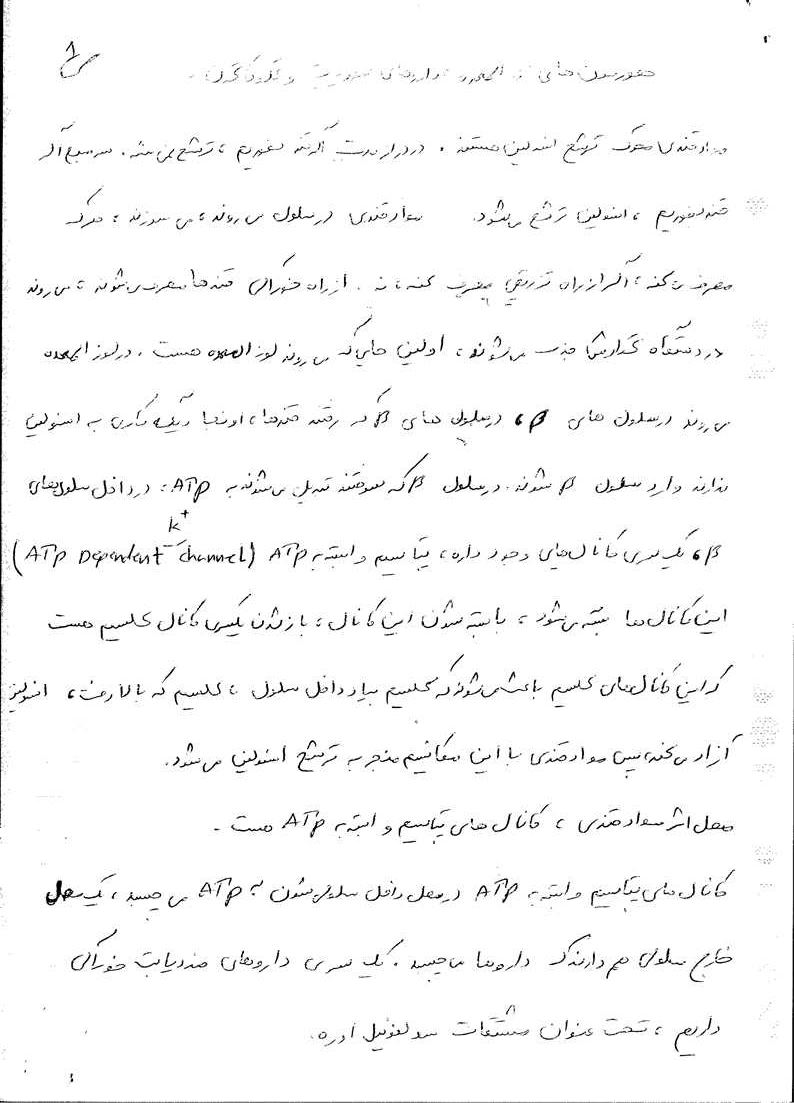 ۸
هورمون های لوزالمعده، داروهای ضددیابت و گلوکاگون
مواد قندی محرک ترشح انسولین هستند. در دراز مدت اگر قند نخوریم، ترشح نمی شه. سریع اگر
قند بخوریم، انسولین ترشح می شود. مواد قندی در سلول می روند، می سوزند،
مصرف می کنه، اگر از راه تزریقی مصرف کنه، نه. از راه خوراکی قندها مصرف می شوند، می روند
در دستگاه گوارش جذب می شوند، اولین جایی که می روند لوزالمعده هست. در لوزالمعده
می روند در سلول های β، در سلول های β که رفتند قندها، اونجا دیگه کاری به انسولین
ندارند وارد سلول β شوند. در سلول β که سوختند تبدیل می شوند به ATP، در داخل سلول های
β، یک سری کانال های وجود داره، پتاسیم وابسته به ATP (ATP Dependent K⁺ channel)
این کانال ها بسته می شود، با بسته شدن این کانال، باز شدن یکسری کانال کلسیم هست
که این کانال های کلسیم باعث می شوند که کلسیم بیاد داخل سلول، کلسیم که بالا رفت، انسولین
آزاد می کنه، پس مواد قندی با این مکانیسم منجر به ترشح انسولین می شود.
محل اثر مواد قندی، کانال های پتاسیم وابسته به ATP هست.
کانال های پتاسیم وابسته به ATP در محل داخل سلولی شون به ATP می چسبد، یک محل
خارج سلولی هم دارند که داروها می چسبد. یک سری داروهای ضددیابت خوراکی
داریم، تحت عنوان مشتقات سولفونیل اوره.